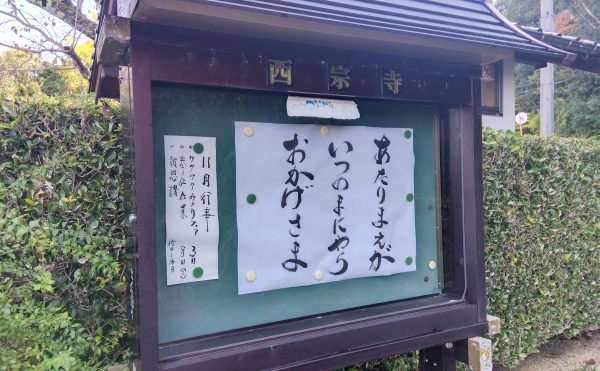 西宗寺
あたりまえが
いつのまにやら
おかげさま
11月行事
3日
報恩講